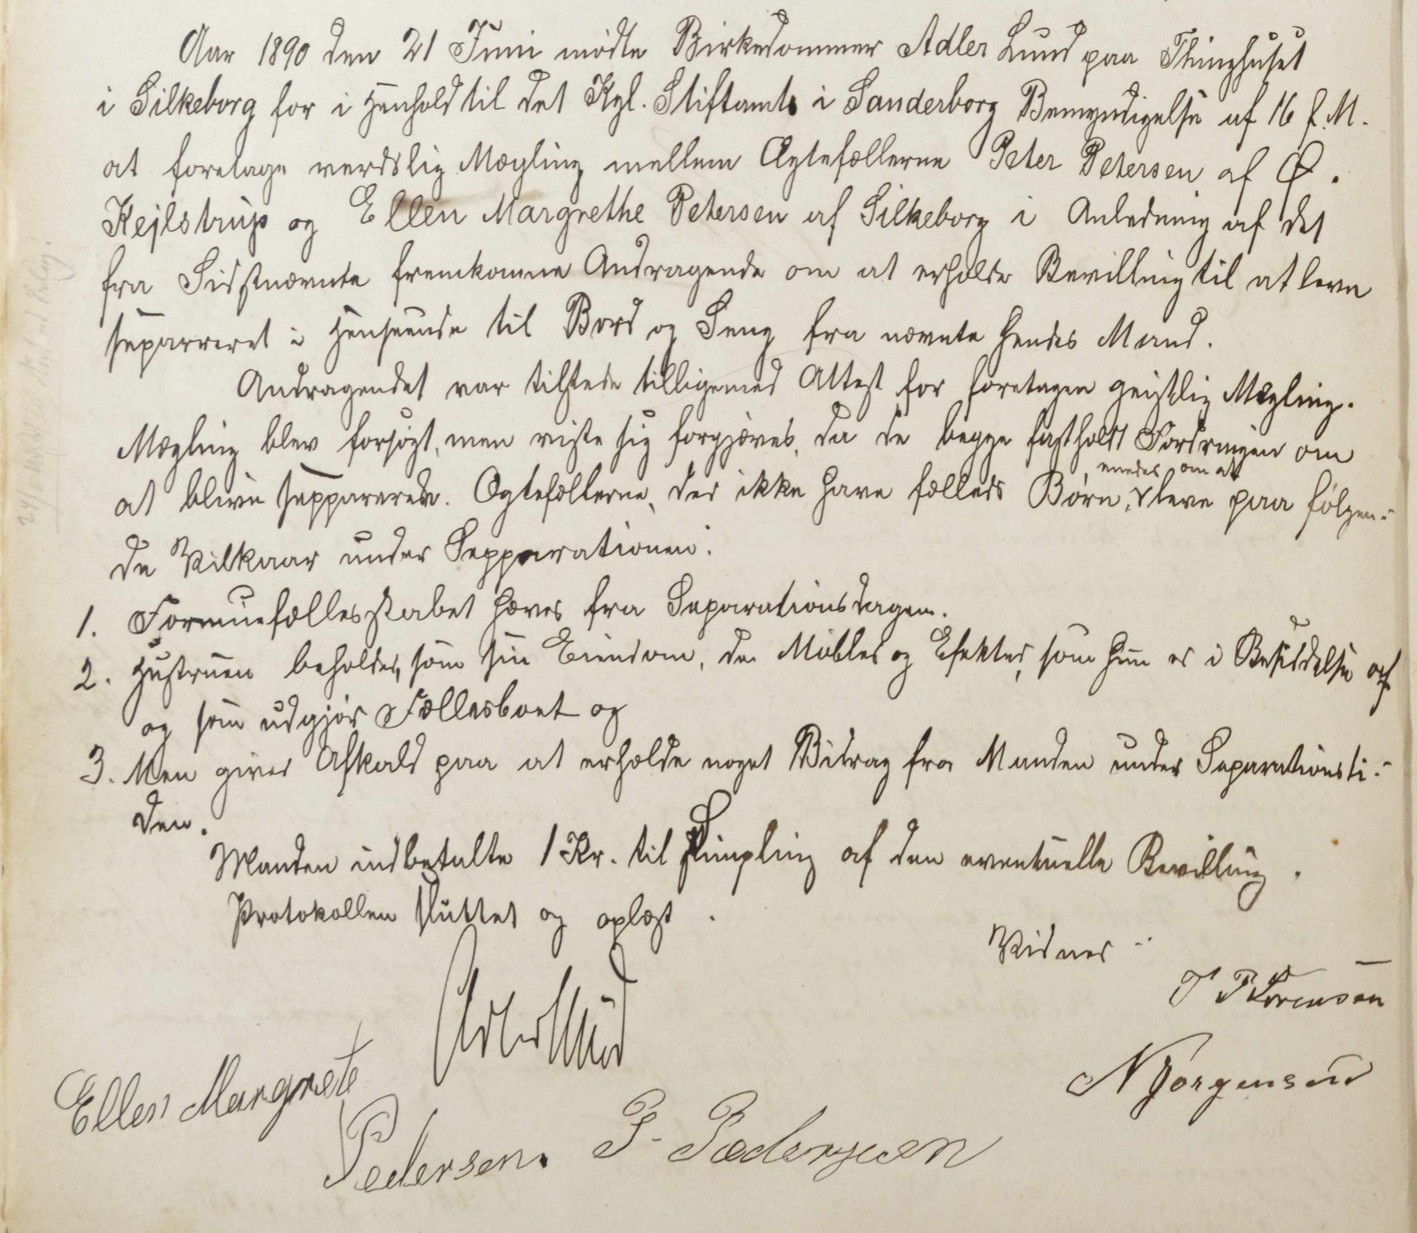 Aar 1890 den 21 Juni mødte Birkedommer Adler Lund paa Thinghuset
i Silkeborg for i Henhold til det Kgl. Stiftamts i Sanderborg Bemyndigelse af 16 f. M.
at foretage verdslig Mægling mellem Ægtefællerne Peter Petersen af Ø.
Kejlstrup og Ellen Margrethe Petersen af Silkeborg i Anledning af det
fra Sidstnævnte fremkomne Andragende om at erholde Bevilling til at leve
separreret i Henseende til Bord og Seng fra nævnte hendes Mand.
Andragendet var tilstede tilligemed Attest for foretagen geistlig Mægling.
Mægling blev forsøgt, men viste sig forgjæves, da de begge fastholdt Fordringen om
at blive sepparerede. Ægtefællerne, der ikke have fælleds Børn, enedes om at leve paa følgen-
de Vilkaar under Sepparationen:
1. Formuefællesskabet hæves fra Separationsdagen.
2. Hustruen beholder, som sin Eiendom, de Møbler og Efekter, som hun er i Besiddelse af
og som udgjør Fællesboet og
3. Men giver Afkald paa at erholde noget Bidrag fra Manden under Separationsti-
den.
Manden indbetalte 1 Kr. til Stempling af den eventuelle Bevilling.
Protokollen sluttet og oplæst.
Vidner:
J P Sørensen
Adler Lund
N Jørgensen
Ellen Margrete
Pedersen. P. Pedersen